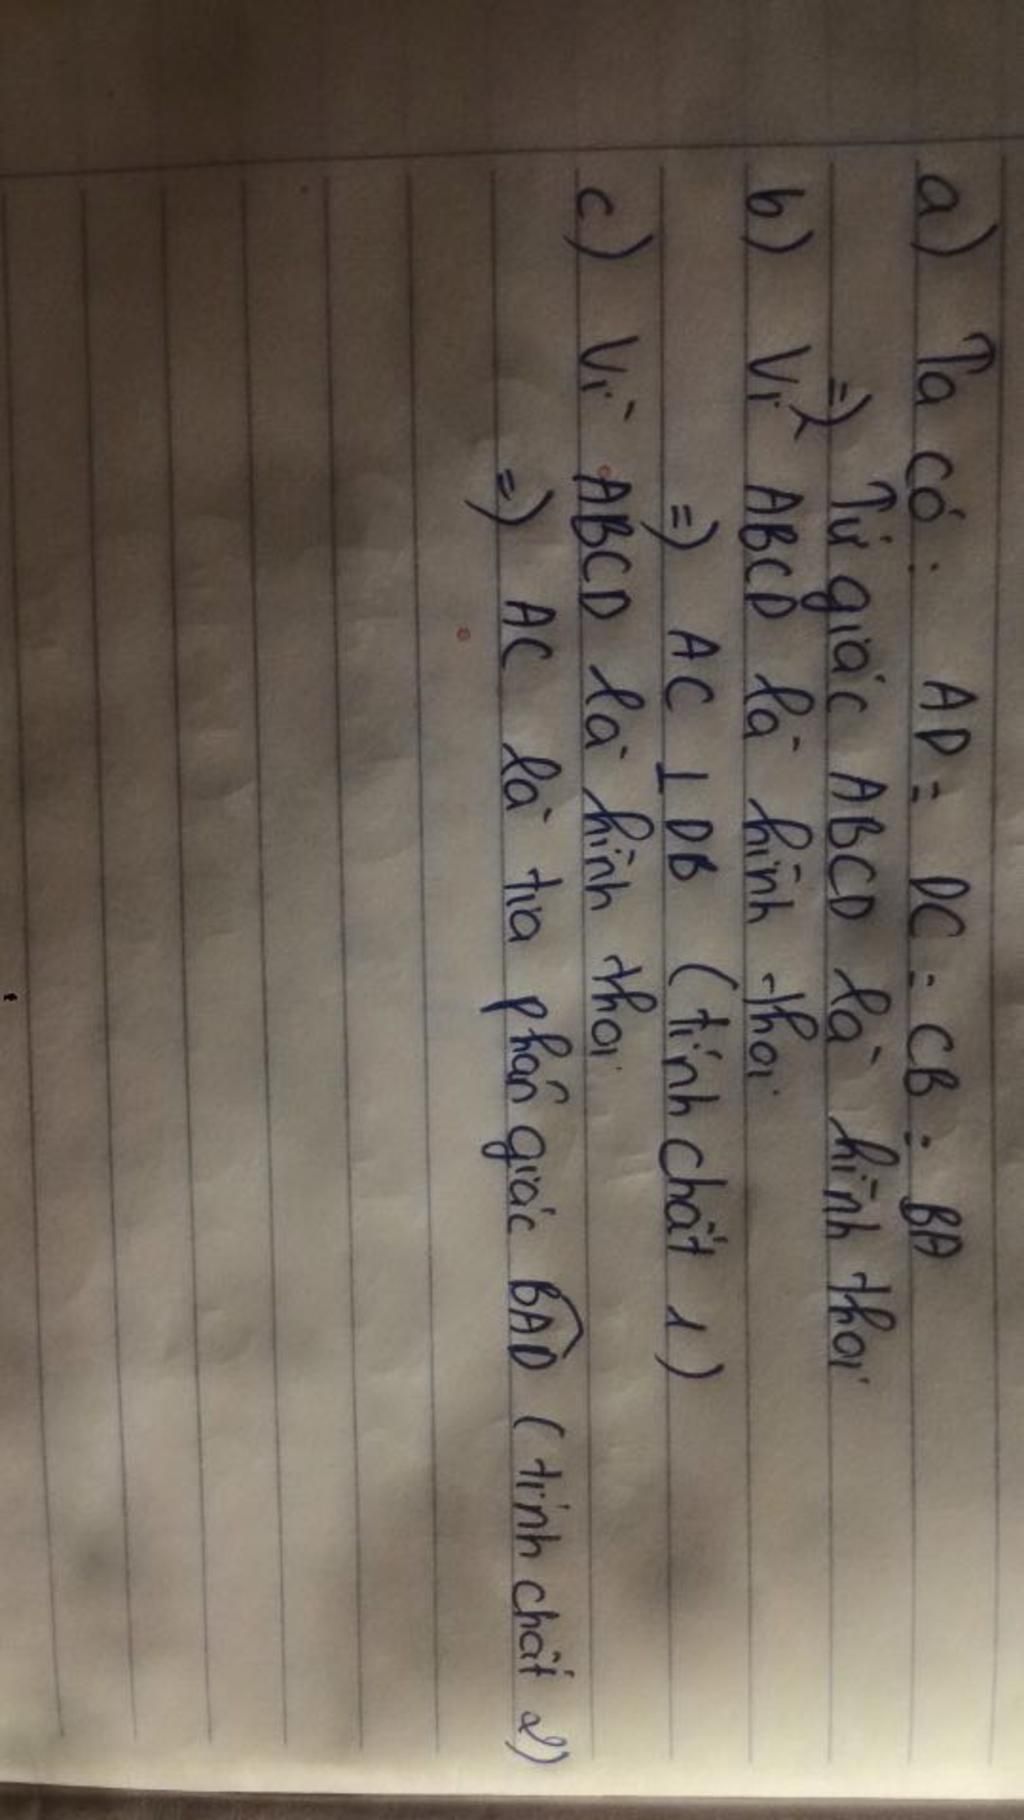 a) Ta có: AD = DC = CB = BA
=> Tứ giác ABCD là hình thoi
b) Vì ABCD là hình thoi
=> AC ⊥ DB (tính chất 1)
c) Vì ABCD là hình thoi
=> AC là tia phân giác BAD (tính chất 2)